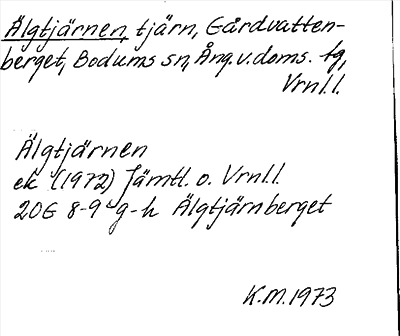 Älgtjärnen, tjärn, Gårdvatten-
berget, Bodums sn, Ång. v. doms. tg,
Vrnl.l.
Älgtjärnen
ek (1972) Jämtl. o. Vrnl.l.
20G 8-9 g-h Älgtjärnberget
K.M. 1973